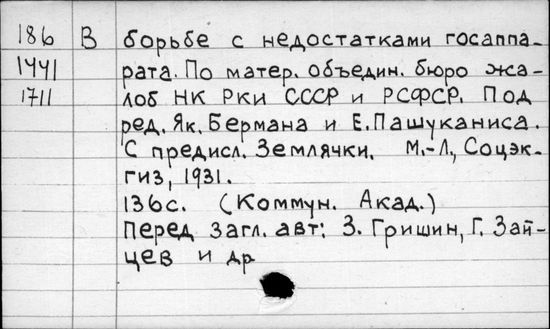 186 В борьбе с недостатками госаппа-
1441 рата. По матер. объедин. бюро жа-
1711 лоб НК РКИ СССР и РСФСР. Под
ред. Як. Бермана и Е. Пашуканиса.
С предисл. Землячки. М.-Л., Соцэк-
гиз, 1931.
136с. (Коммун. Акад.)
Перед загл. авт: З. Гришин, Г. Зай-
цев и др